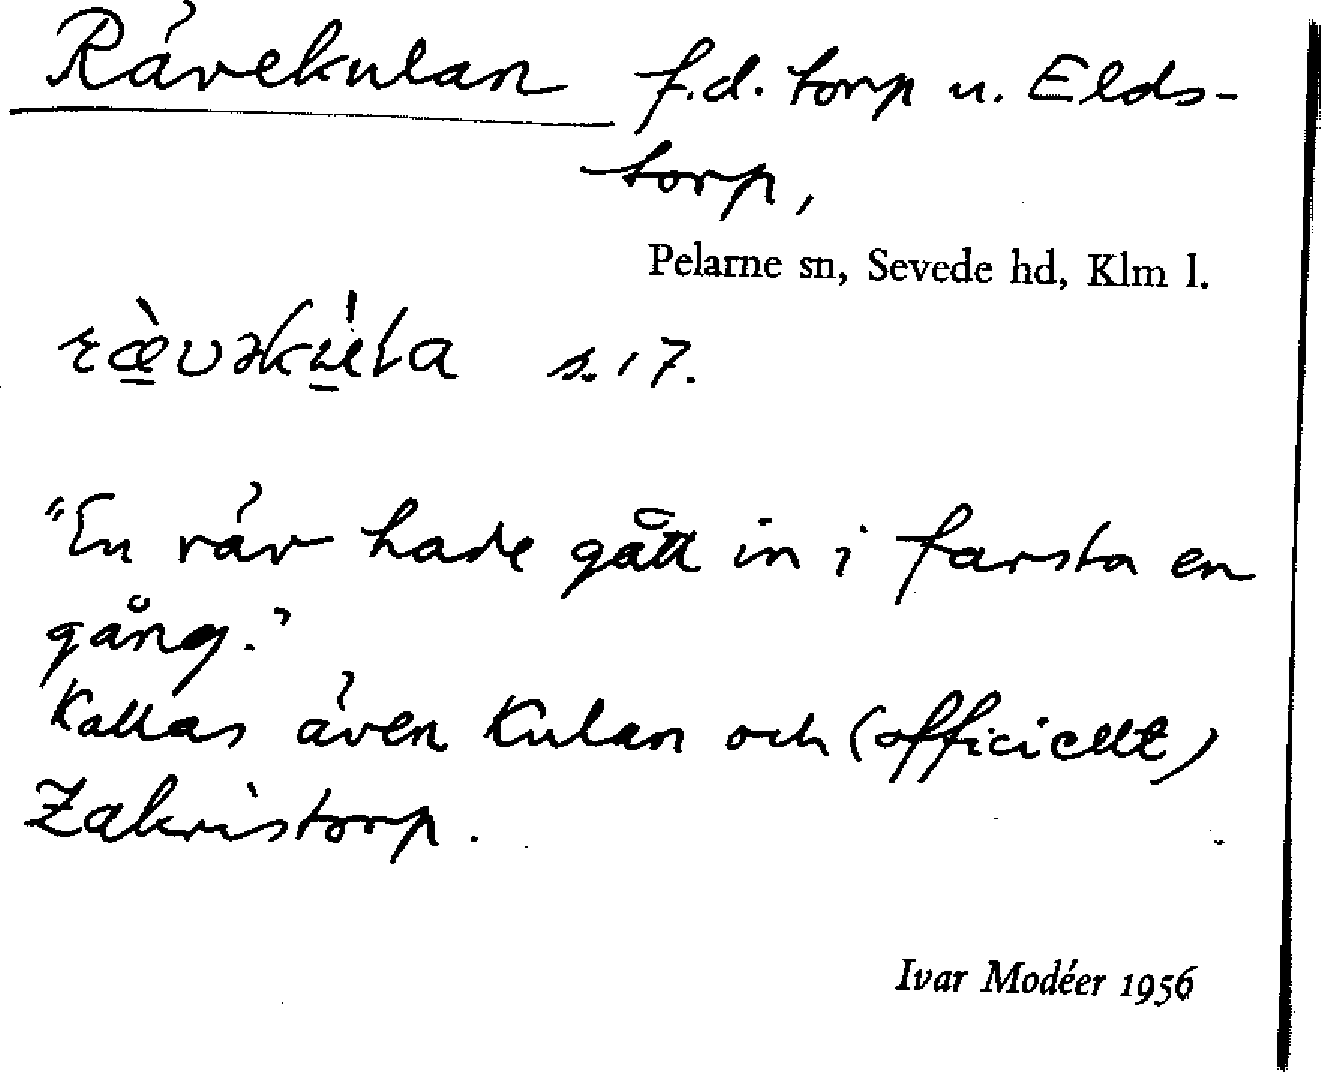 Rävekulan f.d. torp u. Elds-
torp,
Pelarne sn, Sevede hd, Klm l.
s. 17.
"En räv hade gått in i farsta en
gång."
Kallas även Kulan och (officiellt)
Zakristorp.
Ivar Modéer 1956